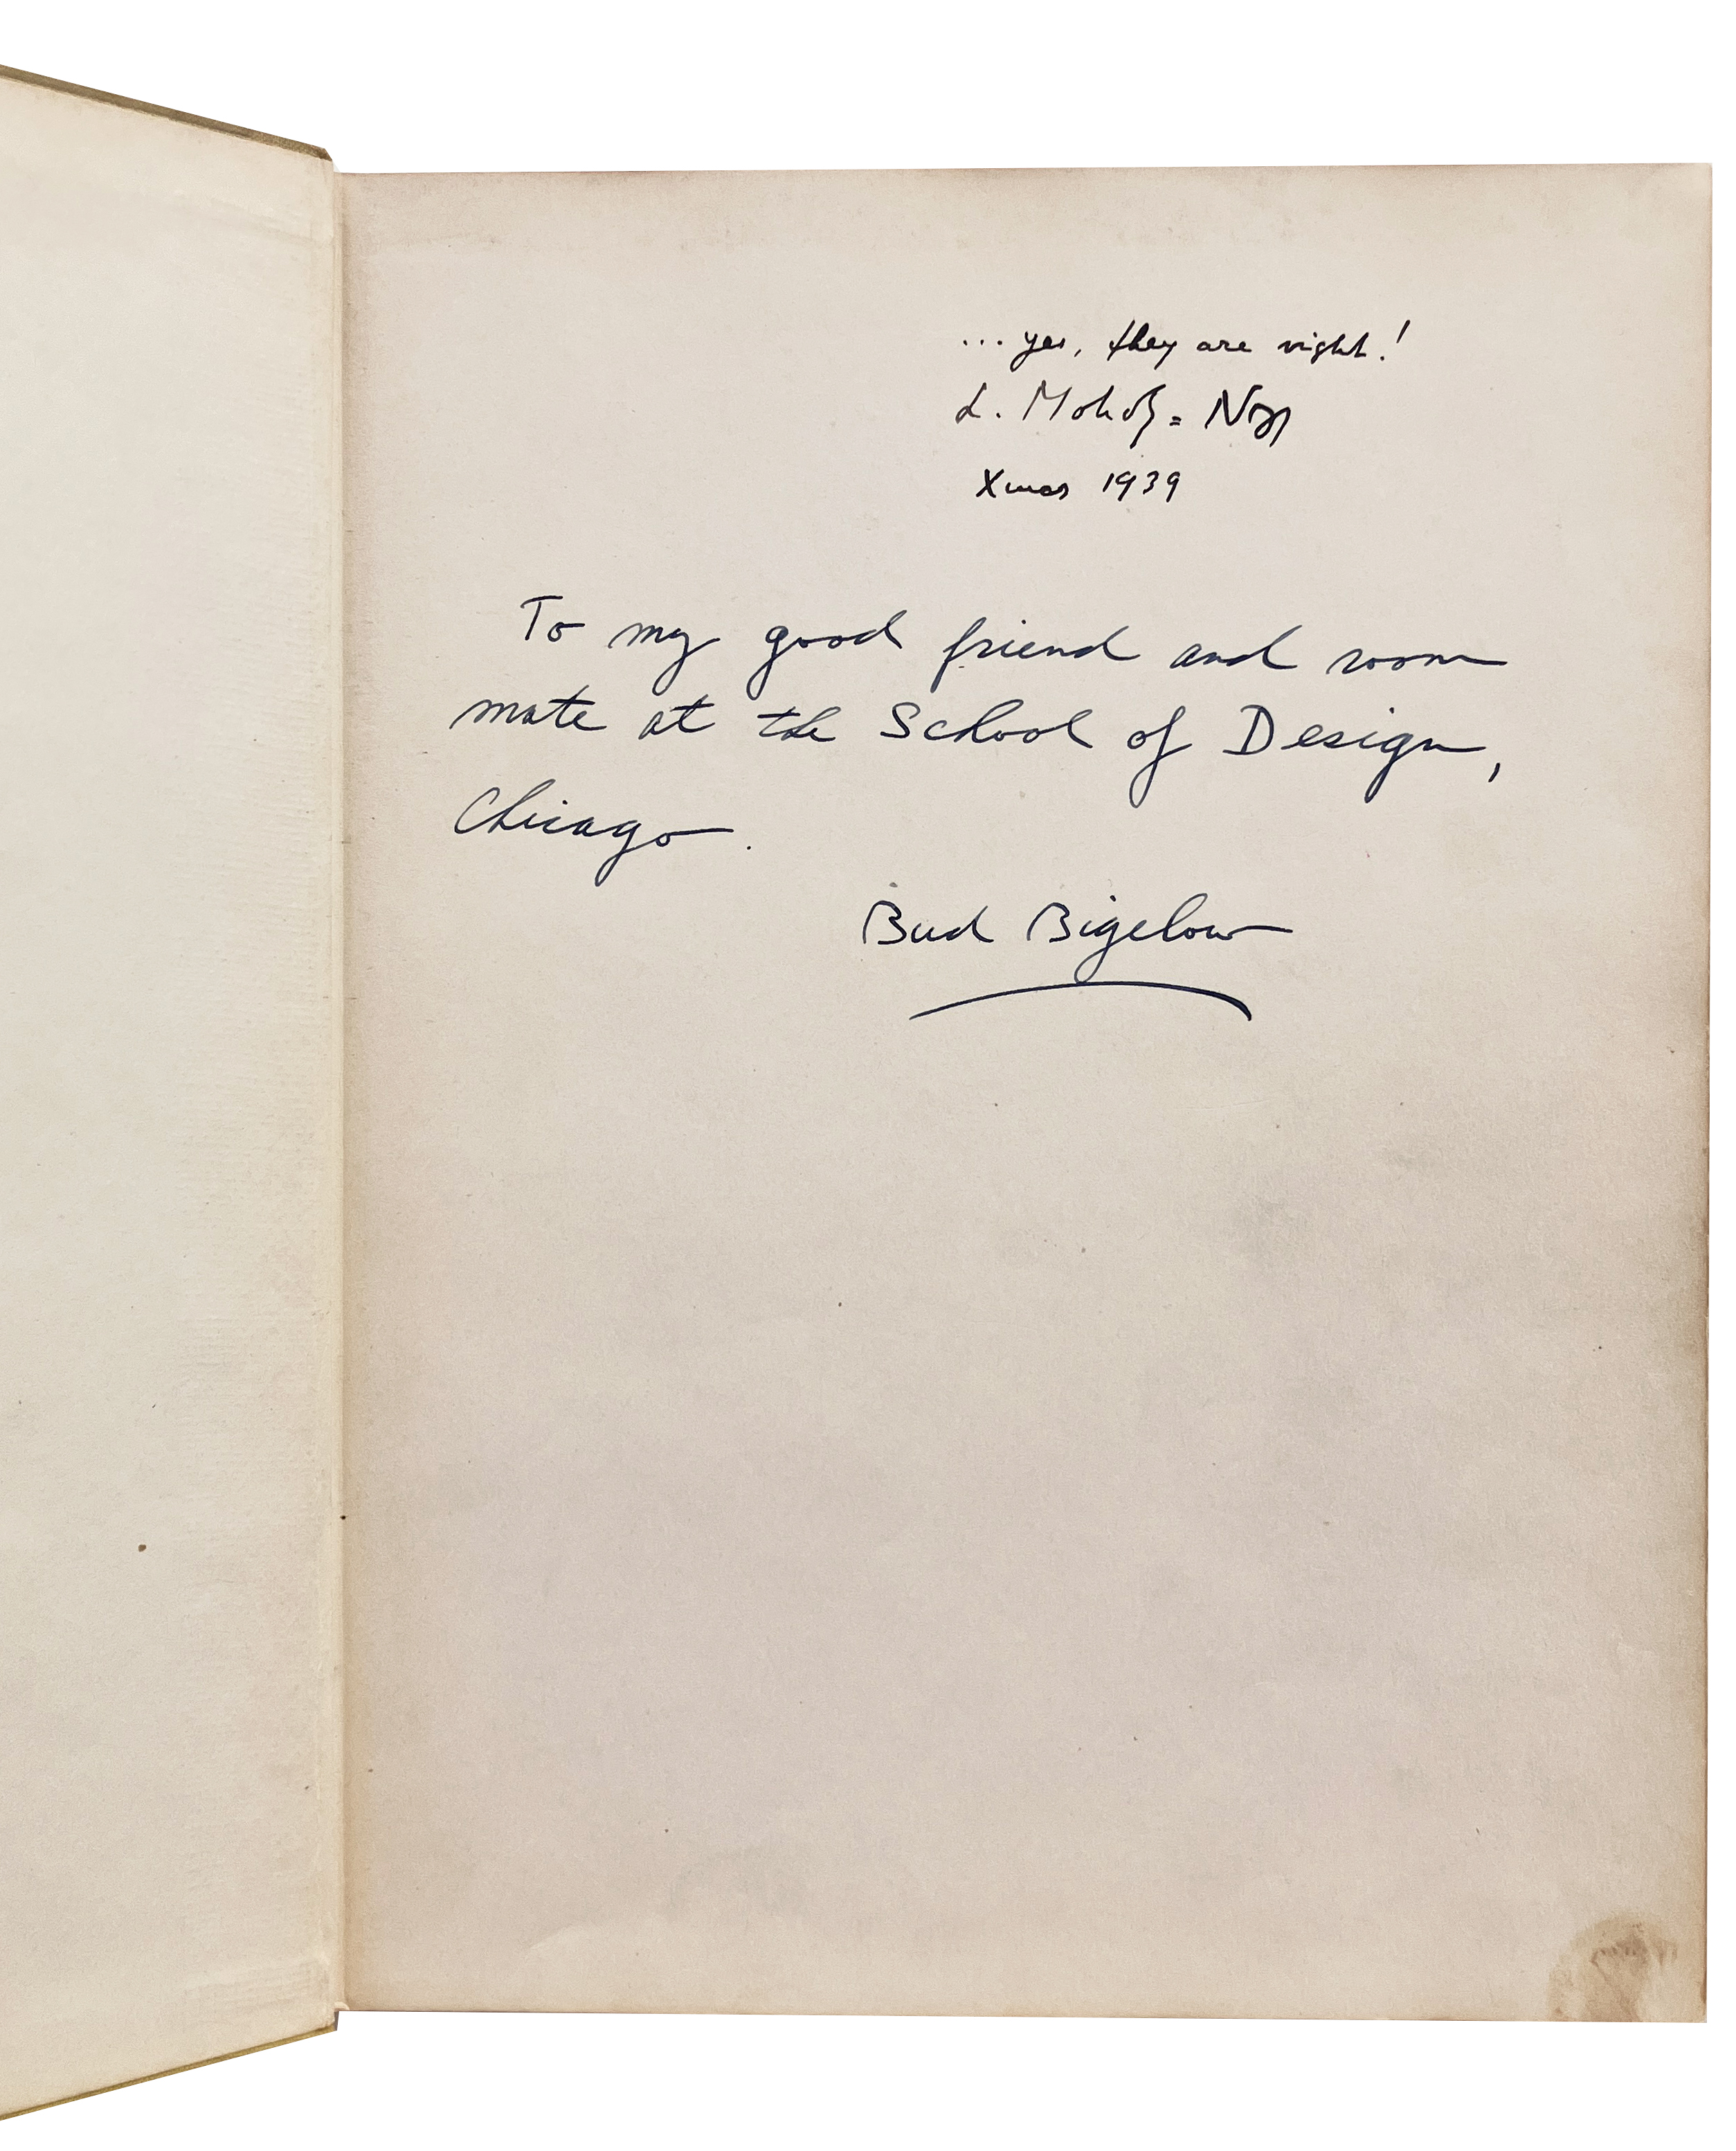 ... yes, they are right!
L. Moholy=Nagy
Xmas 1939
To my good friend and room
mate at the School of Design,
Chicago.
Bud Bigelow